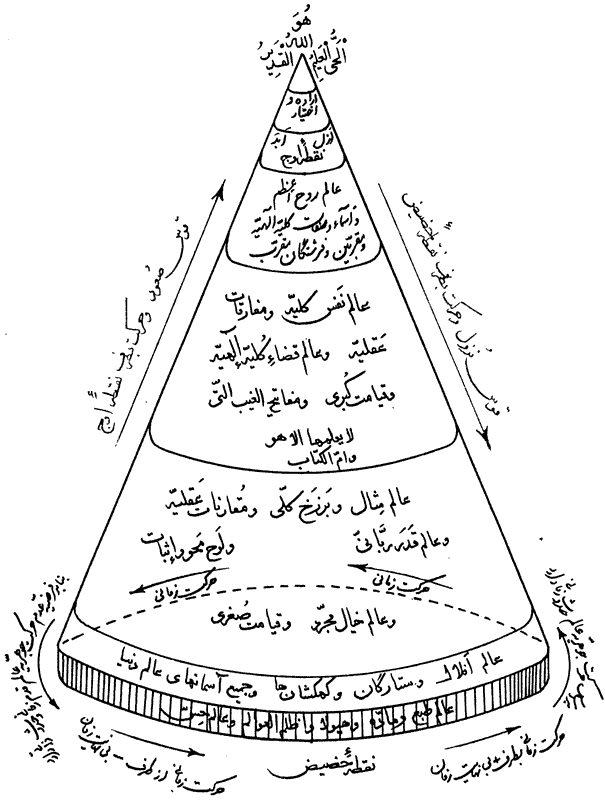 هُوَ
اللهُ
الْحَيُّ الْعَلِيمُ الْقَدِيرُ
اراده و
اختیار
ازل ابد
نقطهٔ اوج
عالم روح اعظم
و اسماء و صفات کلیّه الهیّه
و مقربین و فرشتگان مقرب
عالم نفس کلیّه و مفارقات
عقلیّه و عالم قضاءِ کلیّه الٰهیّه
و قیامت کبری و مفاتیح الغیب الّتی
لا یعلمها الا هو
و امّ الکتاب
عالم مثال و برزخ کلّی و مقارنات عقلیّه
و عالم قدَر ربّانیّ و لوح محو و اثبات
حرکت زمانی حرکت زمانی
و عالم خیال مجرّد و قیامت صغری
عالم افلاک و ستارگان و کهکشان ها و جمیع آسمانهای عالم دنیا
عالم طبع و هیولا و اظلم العوالم و عالم
نقطهٔ حضیض
قوس صُعود و حرکت بطرف نقطهٔ اوج
قوس نُزول و حرکت بطرف نقطهٔ حضیض
حرکت زمانی از طرف - بی نهایت زمان
حرکت زمانی بطرف + بی نهایت زمان